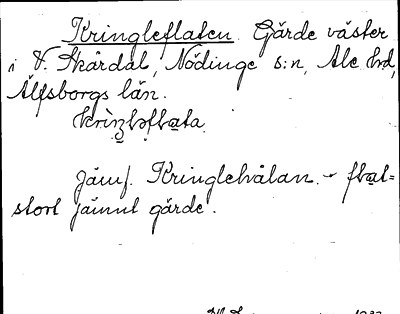 Kringleflaten. Gärde väster
i V. Skårdal, Nödinge s:n, Ale hd,
Älfsborgs län.
Jämf. Kringlehålan. - flat =
stort jämnt gärde.